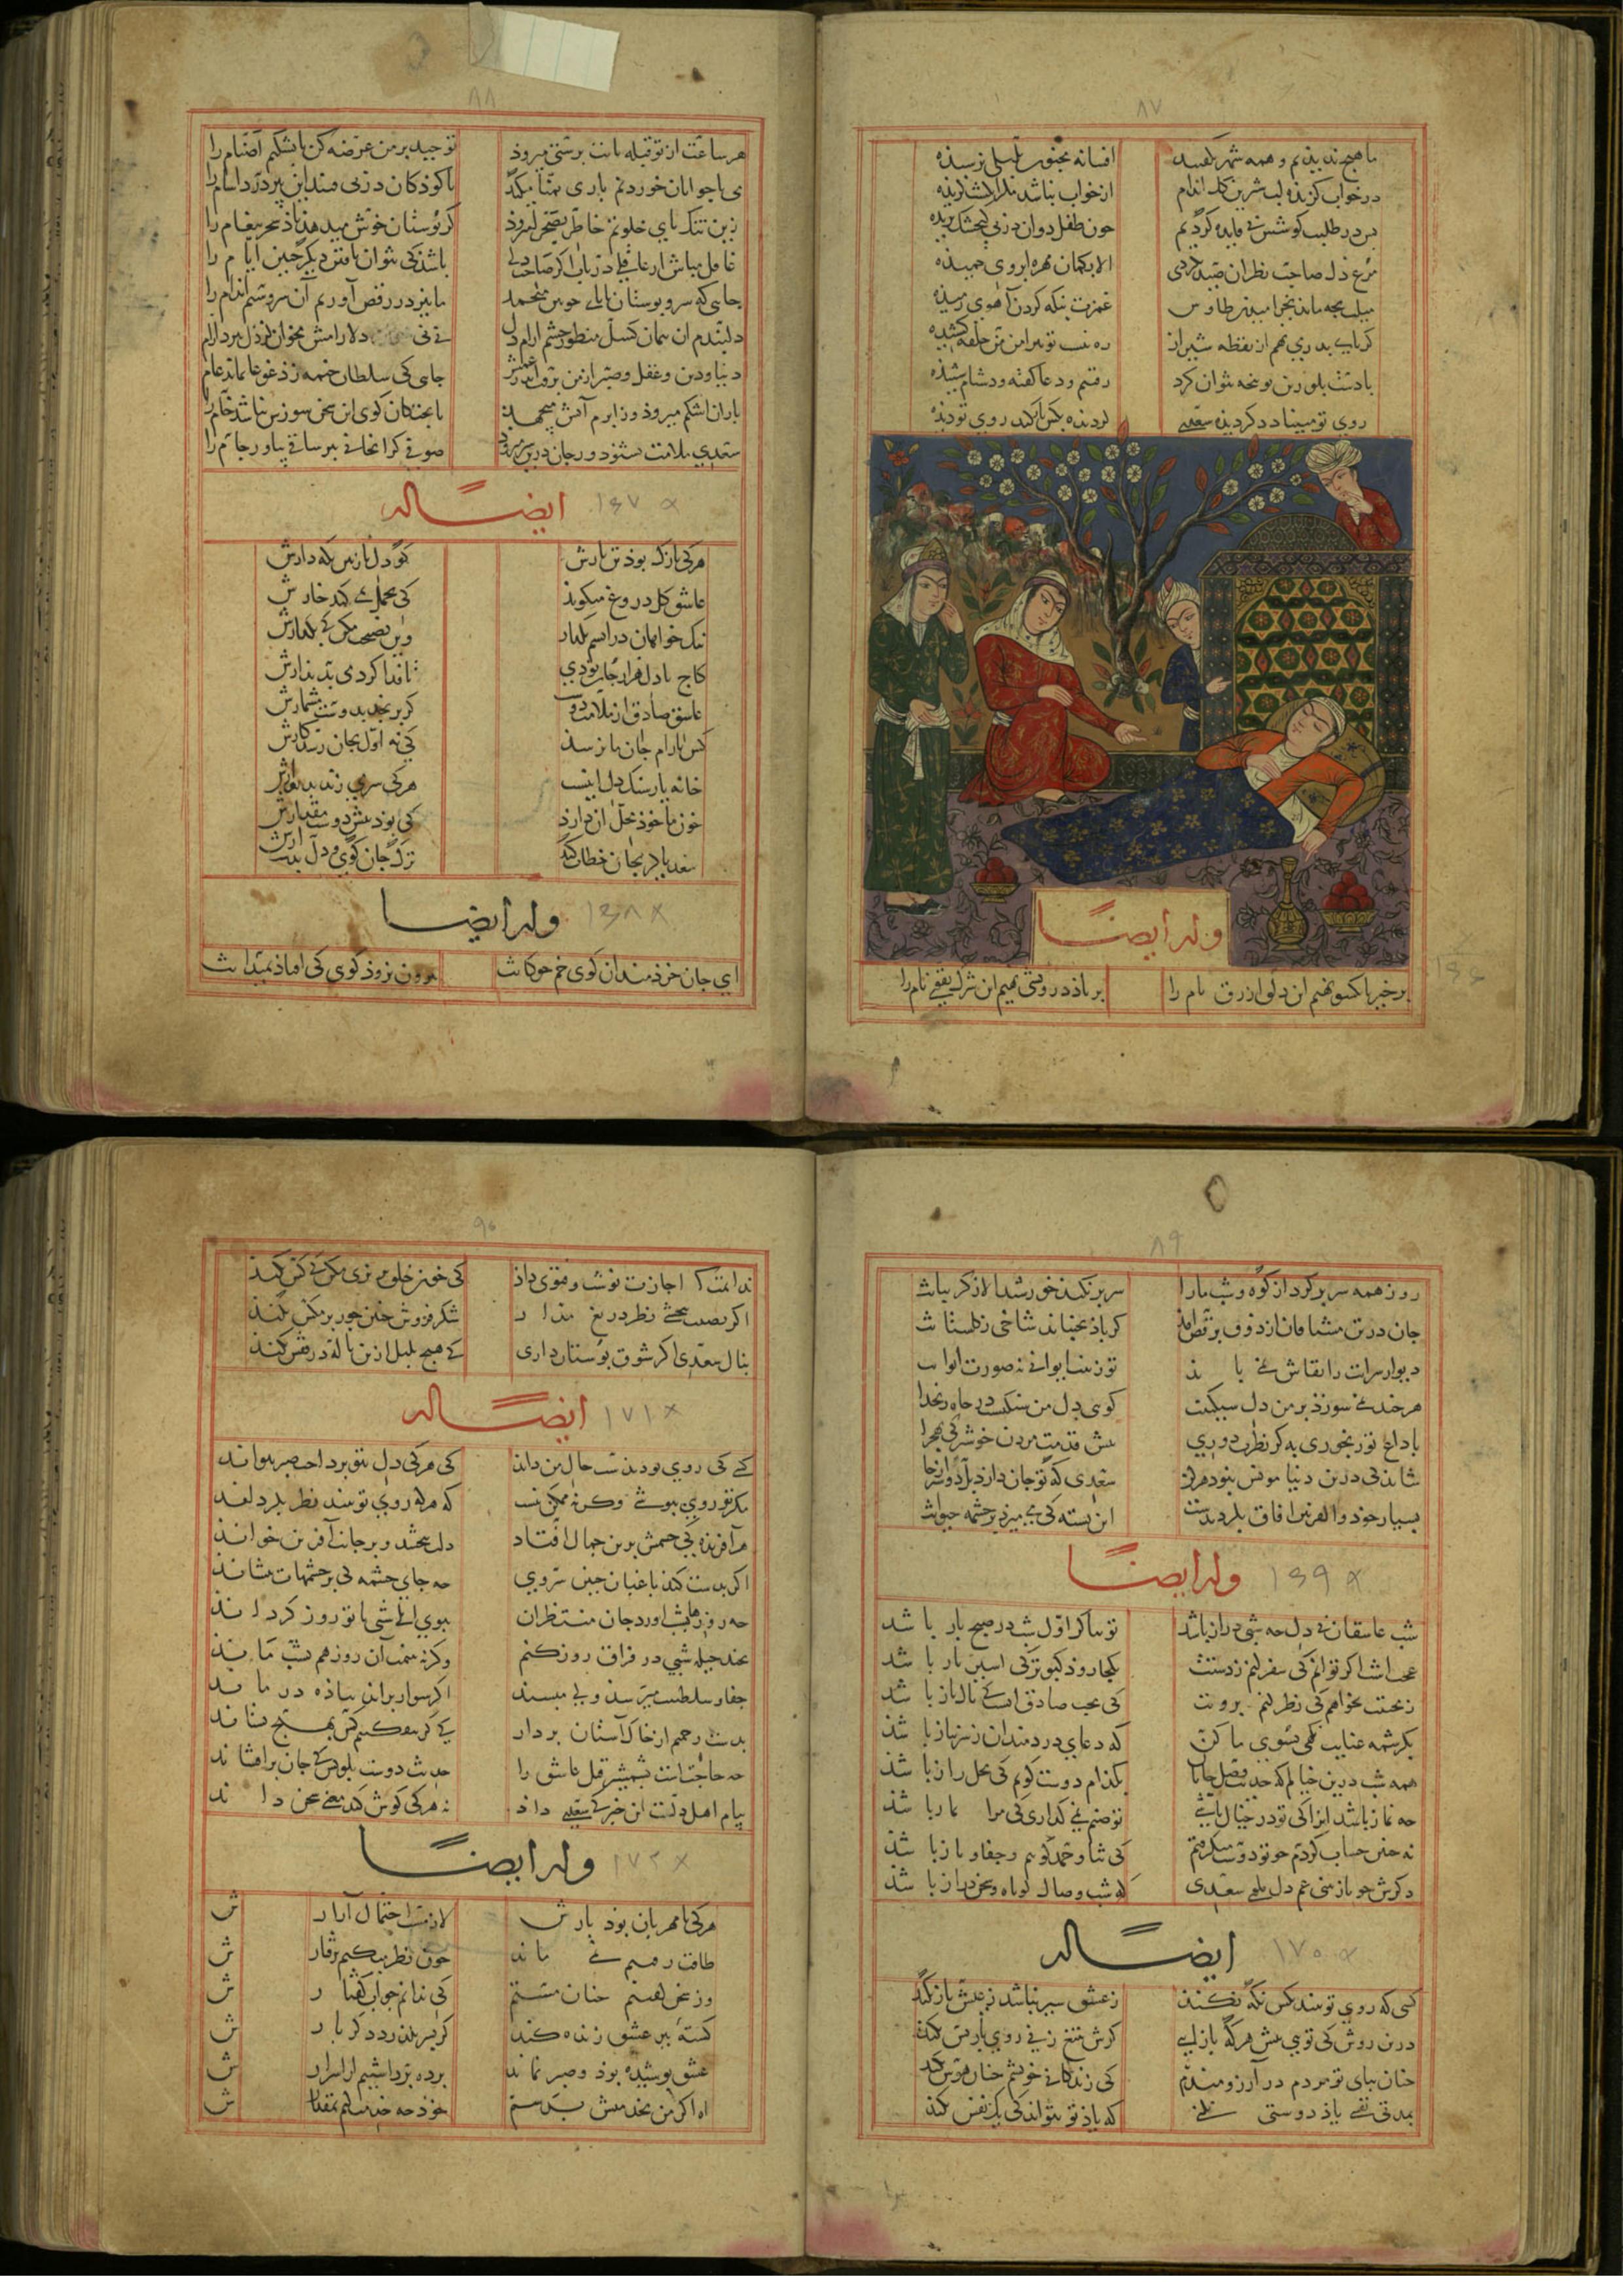 ۸۷
ما هیچ ندیدیم و همه شهر بگفتند افسانه مجنون بلیلی نرسیده
در خواب گزیده لب شیرین گل اندام از خواب نباشد مگر انگشت گزیده
بس در طلبت کوشش بی فایده کردیم چون طفل دوان در پی گنجشک پریده
مرغ دل صاحب نظران صید نکردی الا بکمان مهره ابروی خمیده
میلت بچه ماند بخرامیدن طاوس غمزت بنگه کردن آهوی رمیده
گر پای بدر می نهم از نقطه شیراز ره نیست تو پیرامن من حلقه کشیده
با دست بلورین تو پنجه نتوان کرد رفتیم و دعا گفته و دشنام شنیده
روی تو مبیناد دگر دیده سعدی گر دیده بکس باز کند روی تو دیده
وله ایضاً
برخیز تا یکسو نهیم این دلق ازرق فام را بر باد قلاشی دهیم این شرک تقوی نام را
۸۸
هر ساعت از نو قبله با بت پرستی میرود توحید بر من عرضه کن تا بشکنم اصنام را
می با جوانان خوردنم باری تمنا میکند تا کوذکان در پی فتند این پیر درد آشام را
زین تنک نای خلوتم خاطر بصحرا میروذ کز بوستان خوش میدهد باد سحر پیغام را
غافل مباش ار عاقلی دریاب اگر صاحب دلی باشد کی نتوان یافتن دیگر چنین ایام را
جایی که سرو بوستان با پای چوبین میچمد ما نیز در رقص آوریم آن سرو سیم اندام را
دنیا و دین و عقل و صبر از من برفت اندر غمش جایی کی سلطان خیمه زد غوغا نماند عام را
باران اشکم میروذ وز ابرم آتش میجهد با پختگان گوی این سخن سوزش نباشد خام را
سعدی ملامت نشنود ور جان درین سر میرود صوفی گران جانی ببر ساقی بیاور جام را
ایضاً له ۱۶۷ ×
هر کی نازک بوذ تن یارش گو دل نازنین نگه دارش
عاشق گل دروغ میگوید کی تحمل نمی کند خارش
نیک خواهان در آتشم بگذار وین نصیحت مکن کی بگذارش
کاج با دل هزار جان بوذی تا فدا کردمی بدیدارش
عاشق صادق از ملامت دوست گر برنجد بدوست مشمارش
کس بآرام جان ما نرسد کی نه اول بجان رسد کارش
خانه یار سنگ دل اینست هر کی سر می زند بدیوارش
خون ما خوذ محل آن دارد کی بوذ پیش دوست مقدارش
سعدیا گر بجان خطاب کند ترک جان گوی و دل بدست آرش
وله ایضاً ۱۶۸ ×
ای جان خرذمندان گوی خم چوگانت بیرون نروذ گوی کی افتاذ بمیدانت
۸۹
روز همه سر بر کرد از کوه و شب ما را سر بر نکند خورشید الا ز گریبانت
جان در تن مشتاقان از ذوق برقص آید گر باد بجنباند شاخی ز گلستانت
دیوار سرایت را نقاش نمی باید تو زینت ایوانی نه صورت ایوانت
هر چند نمی سوزذ بر من دل سنگینت گویی دل من سنگیست در چاه زنخدانت
شاید کی درین دنیا سعدی که چو جان دارد
بسیار چو ذوالقرنین آفاق بگردیدست این تشنه کی می میرد بر چشمه حیوانت
وله ایضاً ۱۶۹ ×
شب عاشقان بی دل چه شبی دراز باشد تو بیا کز اول شب در صبح باز باشد
عجب است اگر توانم کی سفر کنم ز دستت بکجا روذ کبوتر کی اسیر باز باشد
ز محبتت نخواهم کی نظر کنم برویت کی محب صادق آنست کی پاک باز باشد
بکرشمه عنایت نگهی بسوی ما کن که دعای دردمندان ز سر نیاز باشد
همه شب درین خیالم که حدیث وصل جانان بکذام دوست گویم کی محل راز باشد
چه نماز باشد آنرا کی تو در خیال باشی تو صنم نمی گذاری کی مرا نماز باشد
نه چنین حساب کردم چو تو دوست می گرفتم کی ثنا و حمد گویم و جفا و ناز باشد
دگرش چو باز بینی غم دل مگوی سعدی که شب وصال کوتاه و سخن دراز باشد
ایضاً له ۱۷۰ ×
کسی که روی تو بیند نگه بکس نکند ز عشق سیر نباشد ز عیش بس نکند
درین روش کی توی پیش هر که باز آیی گرش بتیغ زنی روی باز پس نکند
چنان بپای تو مردم در آرزومندم کی زندگانی خویشم چنان هوس نکند
بمدتی نفسی یاد دوستی نکنی که یاذ تو نتواند کی یک نفس نکند
۹۰
ندانمت کی اجازت نوشت و فتوی داذ کی خون خلق بریزی مکن کی کس نکند
اگر نصیب نبخشی نظر دریغ مدار شکر فروش چنین جور بر مگس نکند
بنال سعدی اگر شوق بوستان داری کی هیچ بلبل ازین ناله در قفس نکند
ایضاً له ۱۷۱ ×
کسی کی روی تو دیدست حال من داند کی هر کی دل بتو پرداخت صبر نتواند
مگر تو روی بپوشی وگرنه ممکن نیست که هر که روی تو بیند نظر بگرداند
هر آفریده کی چشمش برین جمال افتاد دلت ببخشد و بر جانت آفرین خواند
اگر بدست کند باغبان چنین سروی چه جای چشمه کی بر چشمهات بنشاند
چه روزها بشب آورد جان منتظران ببوی آنک شبی با تو روز گرداند
بچند حیله شبی در فراق روز کنم وگر نه بینمت آن روز هم بشب ماند
جفا و سلطنتت میرسد ولی مپسند اگر سوار براند پیاده در ماند
بدست رحمتم از خاک آستان بردار کی گر بیفکنیم کس بهیچ نستاند
چه حاجتست بشمشیر قتل عاشق را حدیث دوست بگویش کی جان برافشاند
پیام اهل دلست این خبر کی سعدی داد نه هر کی گوش کند معنی سخن داند
وله ایضاً ۱۷۲ ×
هر کی نامهربان بوذ یارش لازمست احتمال آزارش
طاقت رفتنم نمی ماند چون نظر میکنم برفتارش
وز سخن گفتنش چنان مستم کی ندانم جواب گفتارش
کشته تیر عشق زنده کند گر بسر بگذرد دگر بارش
عشق پوشیده بوذ و صبر نماند پرده برداشتیم از اسرارش